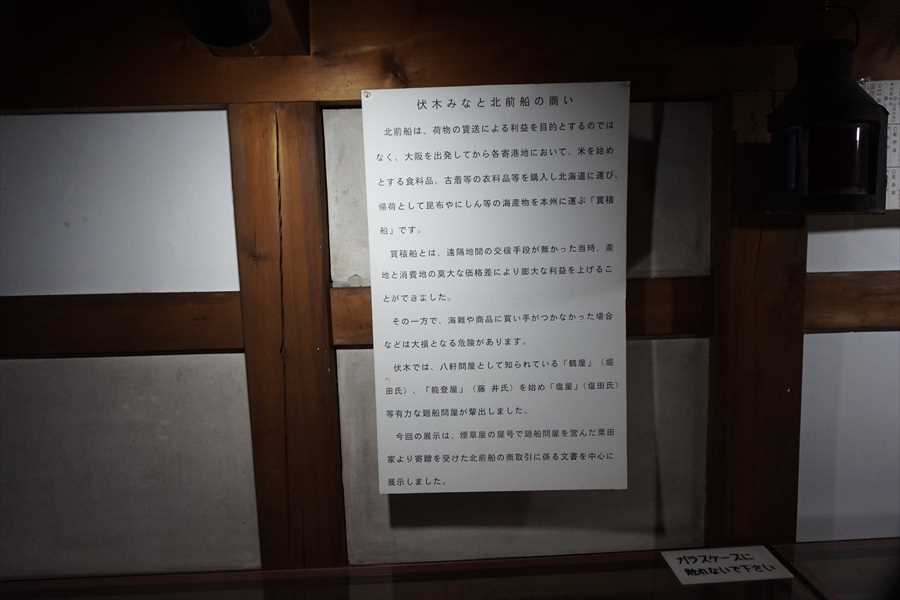 伏木みなと北前船の商い
北前船は、荷物の賃送による利益を目的とするのでは
なく、大阪を出発してから各寄港地において、米を始め
とする食料品、古着等の衣料品等を購入し北海道に運び、
帰荷として昆布やにしん等の海産物を本州に運ぶ「買積
船」です。
買積船とは、遠隔地間の交信手段が無かった当時、産
地と消費地の莫大な価格差により膨大な利益を上げるこ
とができました。
その一方で、海難や商品に買い手がつかなかった場合
などは大損となる危険があります。
伏木では、八軒問屋として知られている「鶴屋」（堀
田氏）、「能登屋」（藤 井氏）を始め「塩屋」（塩田氏）
等有力な廻船問屋が輩出しました。
今回の展示は、煙草屋の屋号で廻船問屋を営んだ栗田
家より寄贈を受けた北前船の商取引に係る文書を中心に
展示しました。
ガラスケースに
触れないで下さい